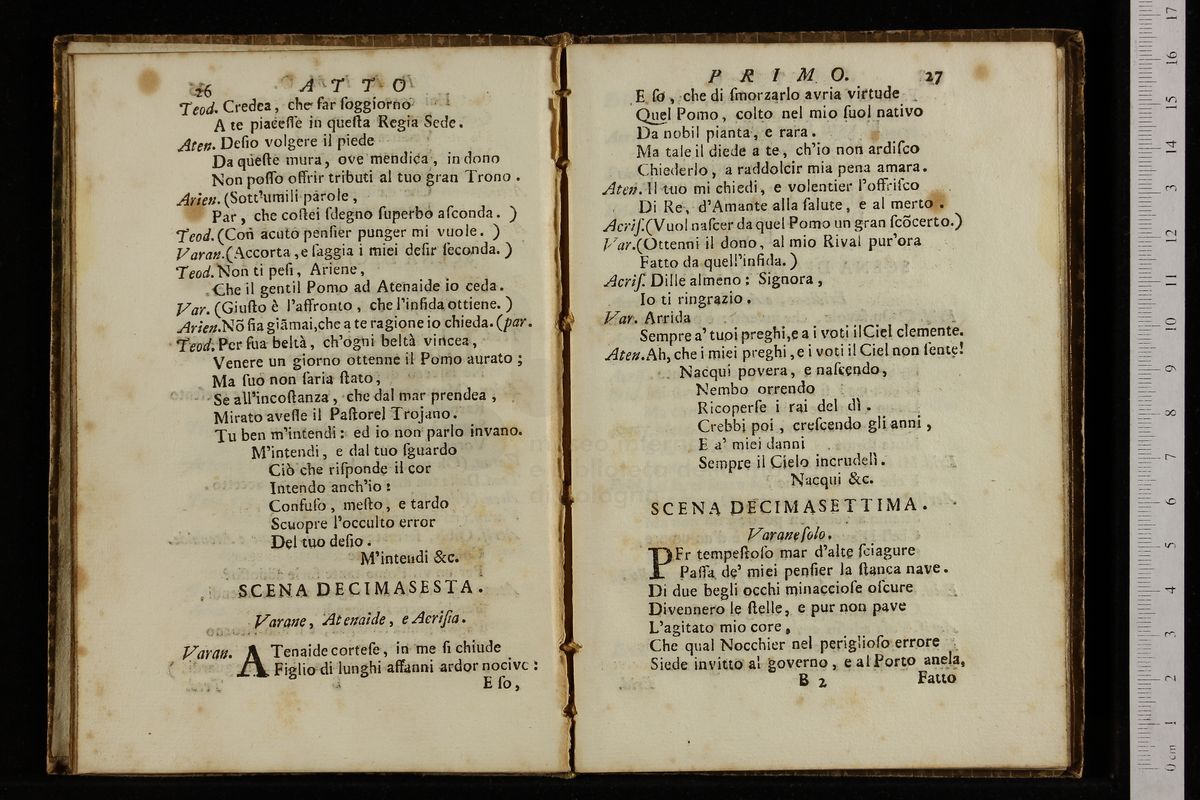 26 ATTO
Teod. Credea, che far ſoggiorno
A te piaceſſe in queſta Regia Sede.
Aten. Deſio volgere il piede
Da queſte mura, ove mendica, in dono
Non poſſo offrir tributi al tuo gran Trono.
Arien. (Sott'umili parole,
Par, che coſtei ſdegno ſuperbo aſconda. )
Teod. (Con acuto penſier punger mi vuole. )
Varan. (Accorta, e ſaggia i miei deſir ſeconda. )
Teod. Non ti peſi, Ariene,
Che il gentil Pomo ad Atenaide io ceda.
Var. (Giuſto è l'affronto, che l'infida ottiene. )
Arien. Nõ ſia giãmai, che a te ragione io chieda. (par.
Teod. Per ſua beltà, ch'ogni beltà vincea,
Venere un giorno ottenne il Pomo aurato;
Ma ſuo non ſaria ſtato,
Se all'incoſtanza, che dal mar prendea,
Mirato aveſſe il Paſtorel Trojano.
Tu ben m'intendi: ed io non parlo invano.
M'intendi, e dal tuo ſguardo
Ciò che riſponde il cor
Intendo anch'io:
Confuſo, meſto, e tardo
Scuopre l'occulto error
Del tuo deſio.
M'intendi &c.
SCENA DECIMASESTA.
Varane, Atenaide, e Acriſia.
Varan. ATenaide corteſe, in me ſi chiude
Figlio di lunghi affanni ardor nocivo:
E ſo,
PRIMO. 27
E ſo, che di ſmorzarlo avria virtude
Quel Pomo, colto nel mio ſuol nativo
Da nobil pianta, e rara.
Ma tale il diede a te, ch'io non ardiſco
Chiederlo, a raddolcir mia pena amara.
Aten. Il tuo mi chiedi, e volentier l'offriſco
Di Re, d'Amante alla ſalute, e al merto.
Acriſ. (Vuol naſcer da quel Pomo un gran ſcõcerto.)
Var. (Ottenni il dono, al mio Rival pur'ora
Fatto da quell'infida. )
Acriſ. Dille almeno: Signora,
Io ti ringrazio.
Var. Arrida
Sempre a' tuoi preghi, e a i voti il Ciel clemente.
Aten. Ah, che i miei preghi, e i voti il Ciel non ſente!
Nacqui povera, e naſcendo,
Nembo orrendo
Ricoperſe i rai del dì.
Crebbi poi, creſcendo gli anni,
E a' miei danni
Sempre il Cielo incrudelì.
Nacqui &c.
SCENA DECIMASETTIMA.
Varane ſolo.
PEr tempeſtoſo mar d'alte ſciagure
Paſſa de' miei penſier la ſtanca nave.
Di due begli occhi minaccioſe oſcure
Divennero le ſtelle, e pur non pave
L'agitato mio core,
Che qual Nocchier nel periglioſo errore
Siede invitto al governo, e al Porto anela,
B 2 Fatto
0 cm 1 2 3 4 5 6 7 8 9 10 11 12 13 14 15 16 17